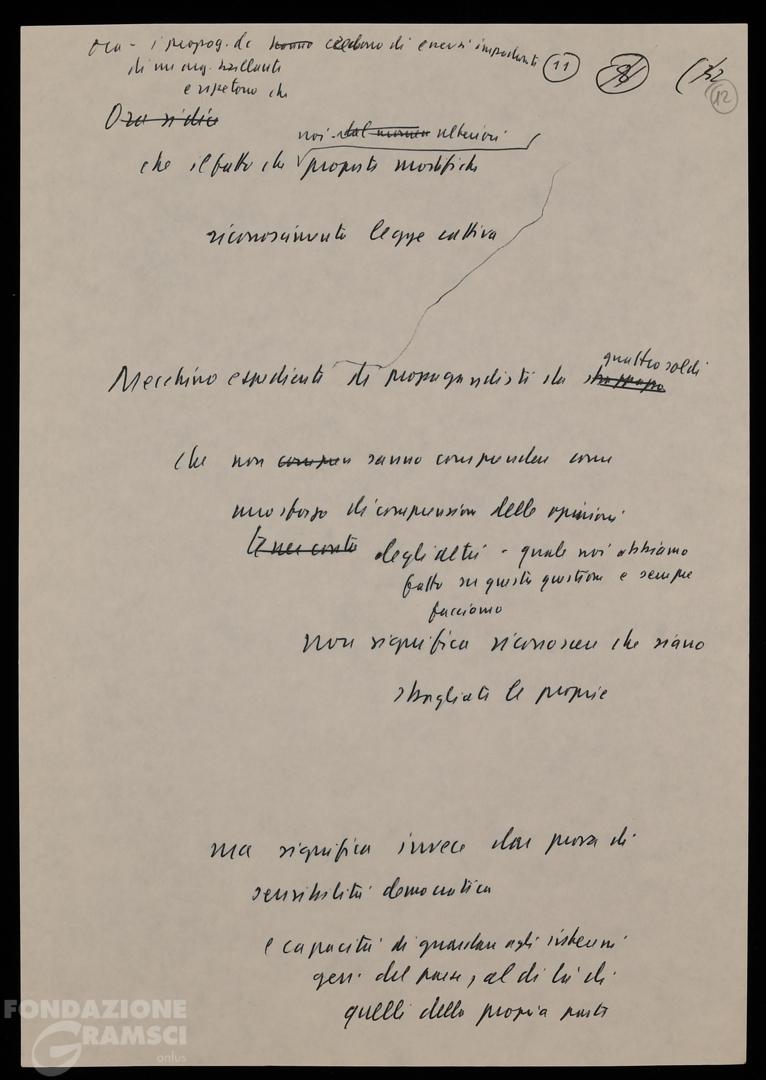 Ora - i propog. dc hanno credono di essersi impadroniti 11 12
di un arg. brillante
e ripetono che
Ora si dice
noi - dal momen ulteriori
che il fatto che proposte modifiche
riconoscimento legge cattiva
quattro soldi
Mecchino espediente di propagandisti da strappazo
che non compren sanno comprendere come
uno sforzo di comprensione delle opinioni
degli altri - quale noi abbiamo
fatto su questa questione e sempre
facciamo
non significa riconoscere che siano
sbagliate le proprie
ma significa invece dar prova di
sensibilità democratica
e capacità di guardare agli interessi
gen. del paese, al di là di
quelli della propria parte
FONDAZIONE
GRAMSCI
onlus